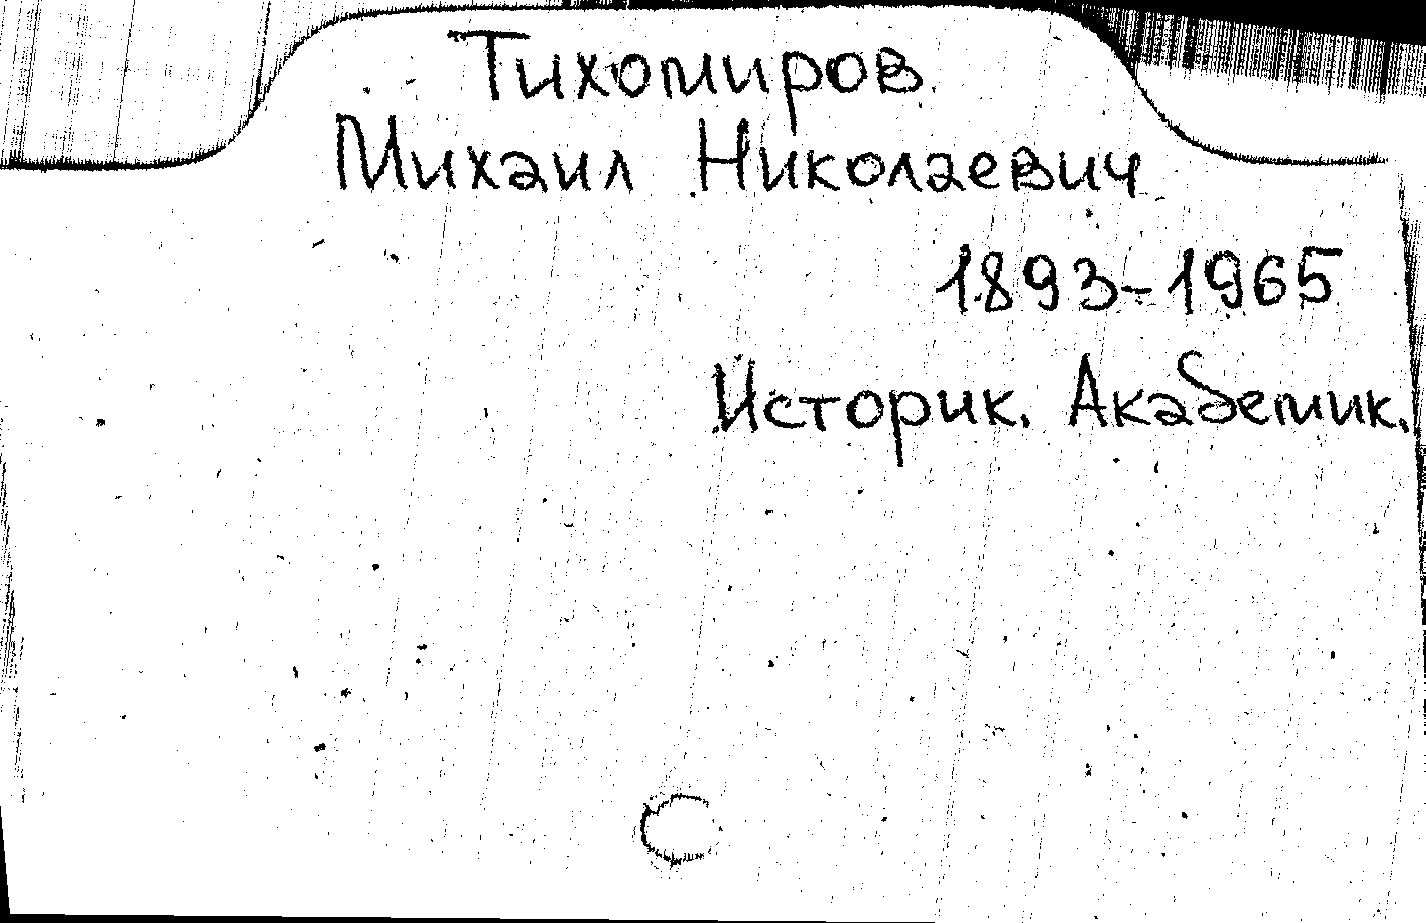 Тихомиров
Михаил Николаевич
1893-1965
Историк. Академик.